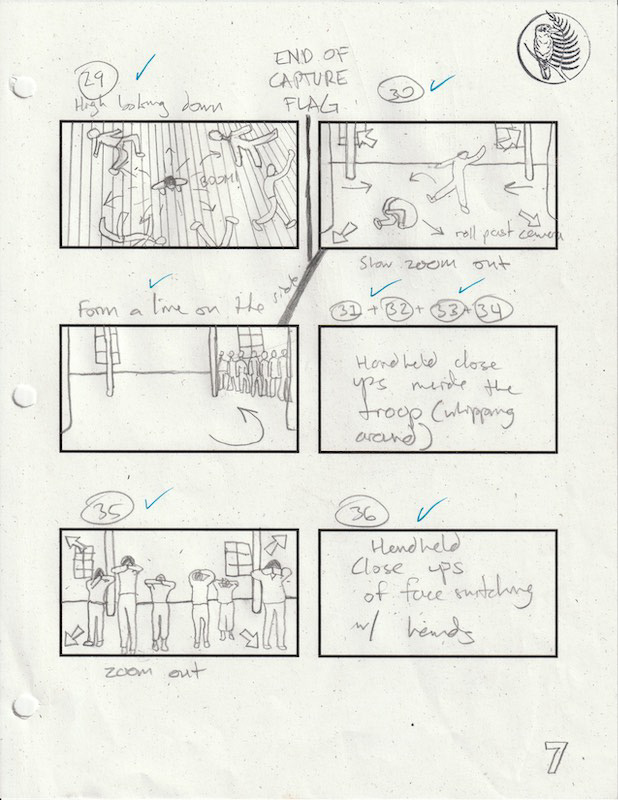 END OF
CAPTURE
FLAG
29
High looking down
BOOM!
30
roll past camera
Slow zoom out
Form a line on the side
31 + 32 + 33 + 34
Handheld close
ups inside the
troop (whipping
around)
35
zoom out
36
Handheld
Close ups
of face switching
w/ hands
7